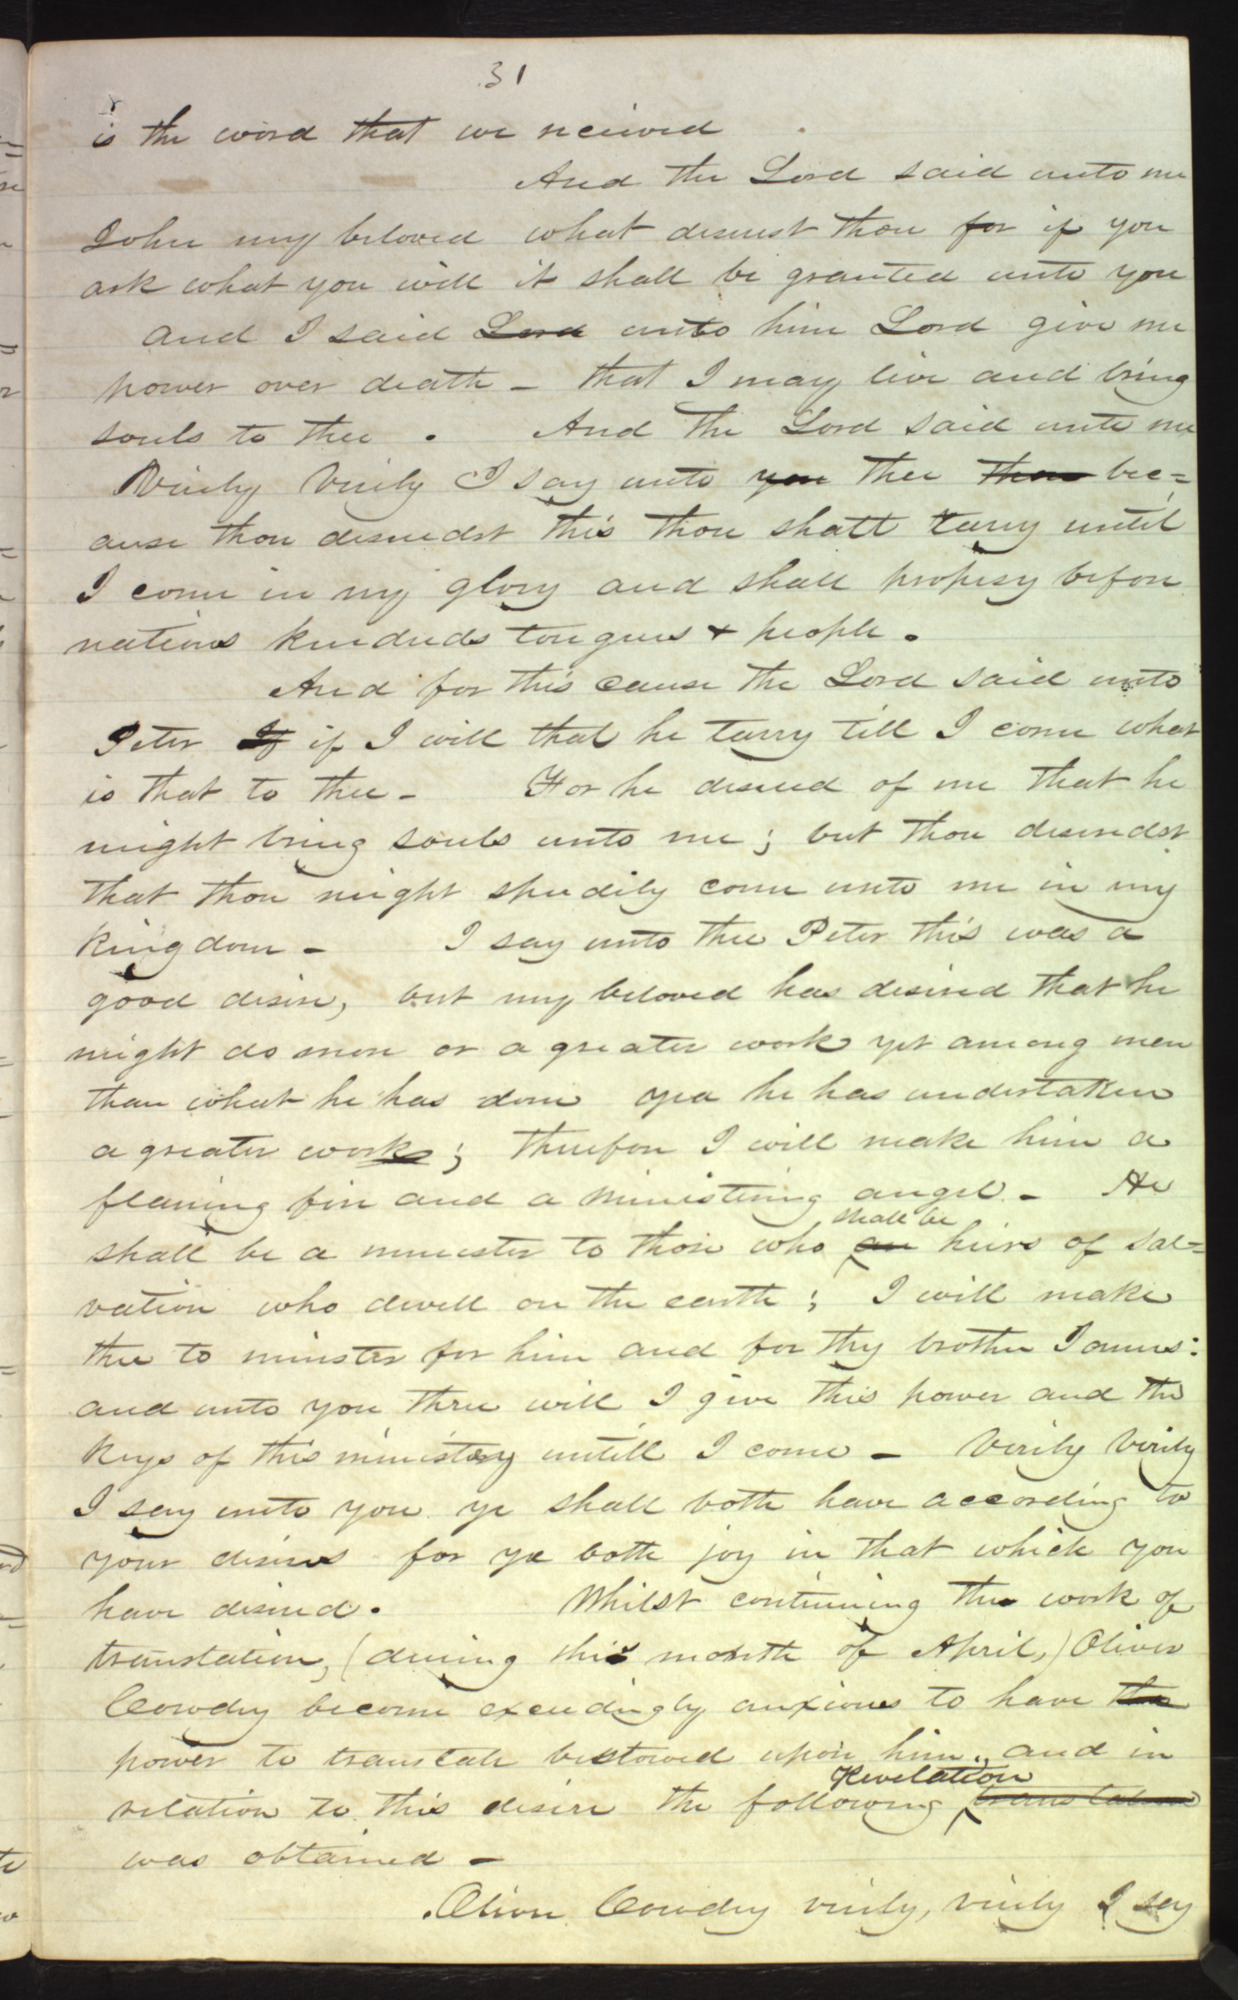 31
is the word that we received
And the Lord said unto me
John my beloved what desirest thou for if you
ask what you will it shall be granted unto you
and I said Lord unto him Lord give me
power over death - that I may live and bring
souls to thee . And the Lord said unto me
Verily Verily I say unto you thee thou bec=
ause thou desiredst this thou shalt tarry until
I come in my glory and shall prophesy before
nations kindreds tongues & people .
And for this cause the Lord said unto
Peter If if I will that he tarry till I come what
is that to thee - For he desired of me that he
might bring souls unto me ; but thou desiredst
that thou might speedily come unto me in my
kingdom - I say unto thee Peter this was a
good desire, but my beloved has desired that he
might do more or a greater work yet among men
than what he has done yea he has undertaken
a greater work ; therefore I will make him a
flaming fire and a ministering angel - He
shall be
shall be a minister to those who are heirs of sal=
vation who dwell on the earth ; I will make
thee to minister for him and for thy brother James :
and unto you three will I give this power and the
keys of this ministry untill I come - Verily Verily
I say unto you ye shall both have according to
your desires for ye both joy in that which you
have desired . Whilst continuing the work of
translation, (during this month of April,) Oliver
Cowdry became exceedingly anxious to have the
power to translate bestowed upon him, and in
Revelation
relation to this desire the following translation
was obtained -
Oliver Cowdry verily, verily I say